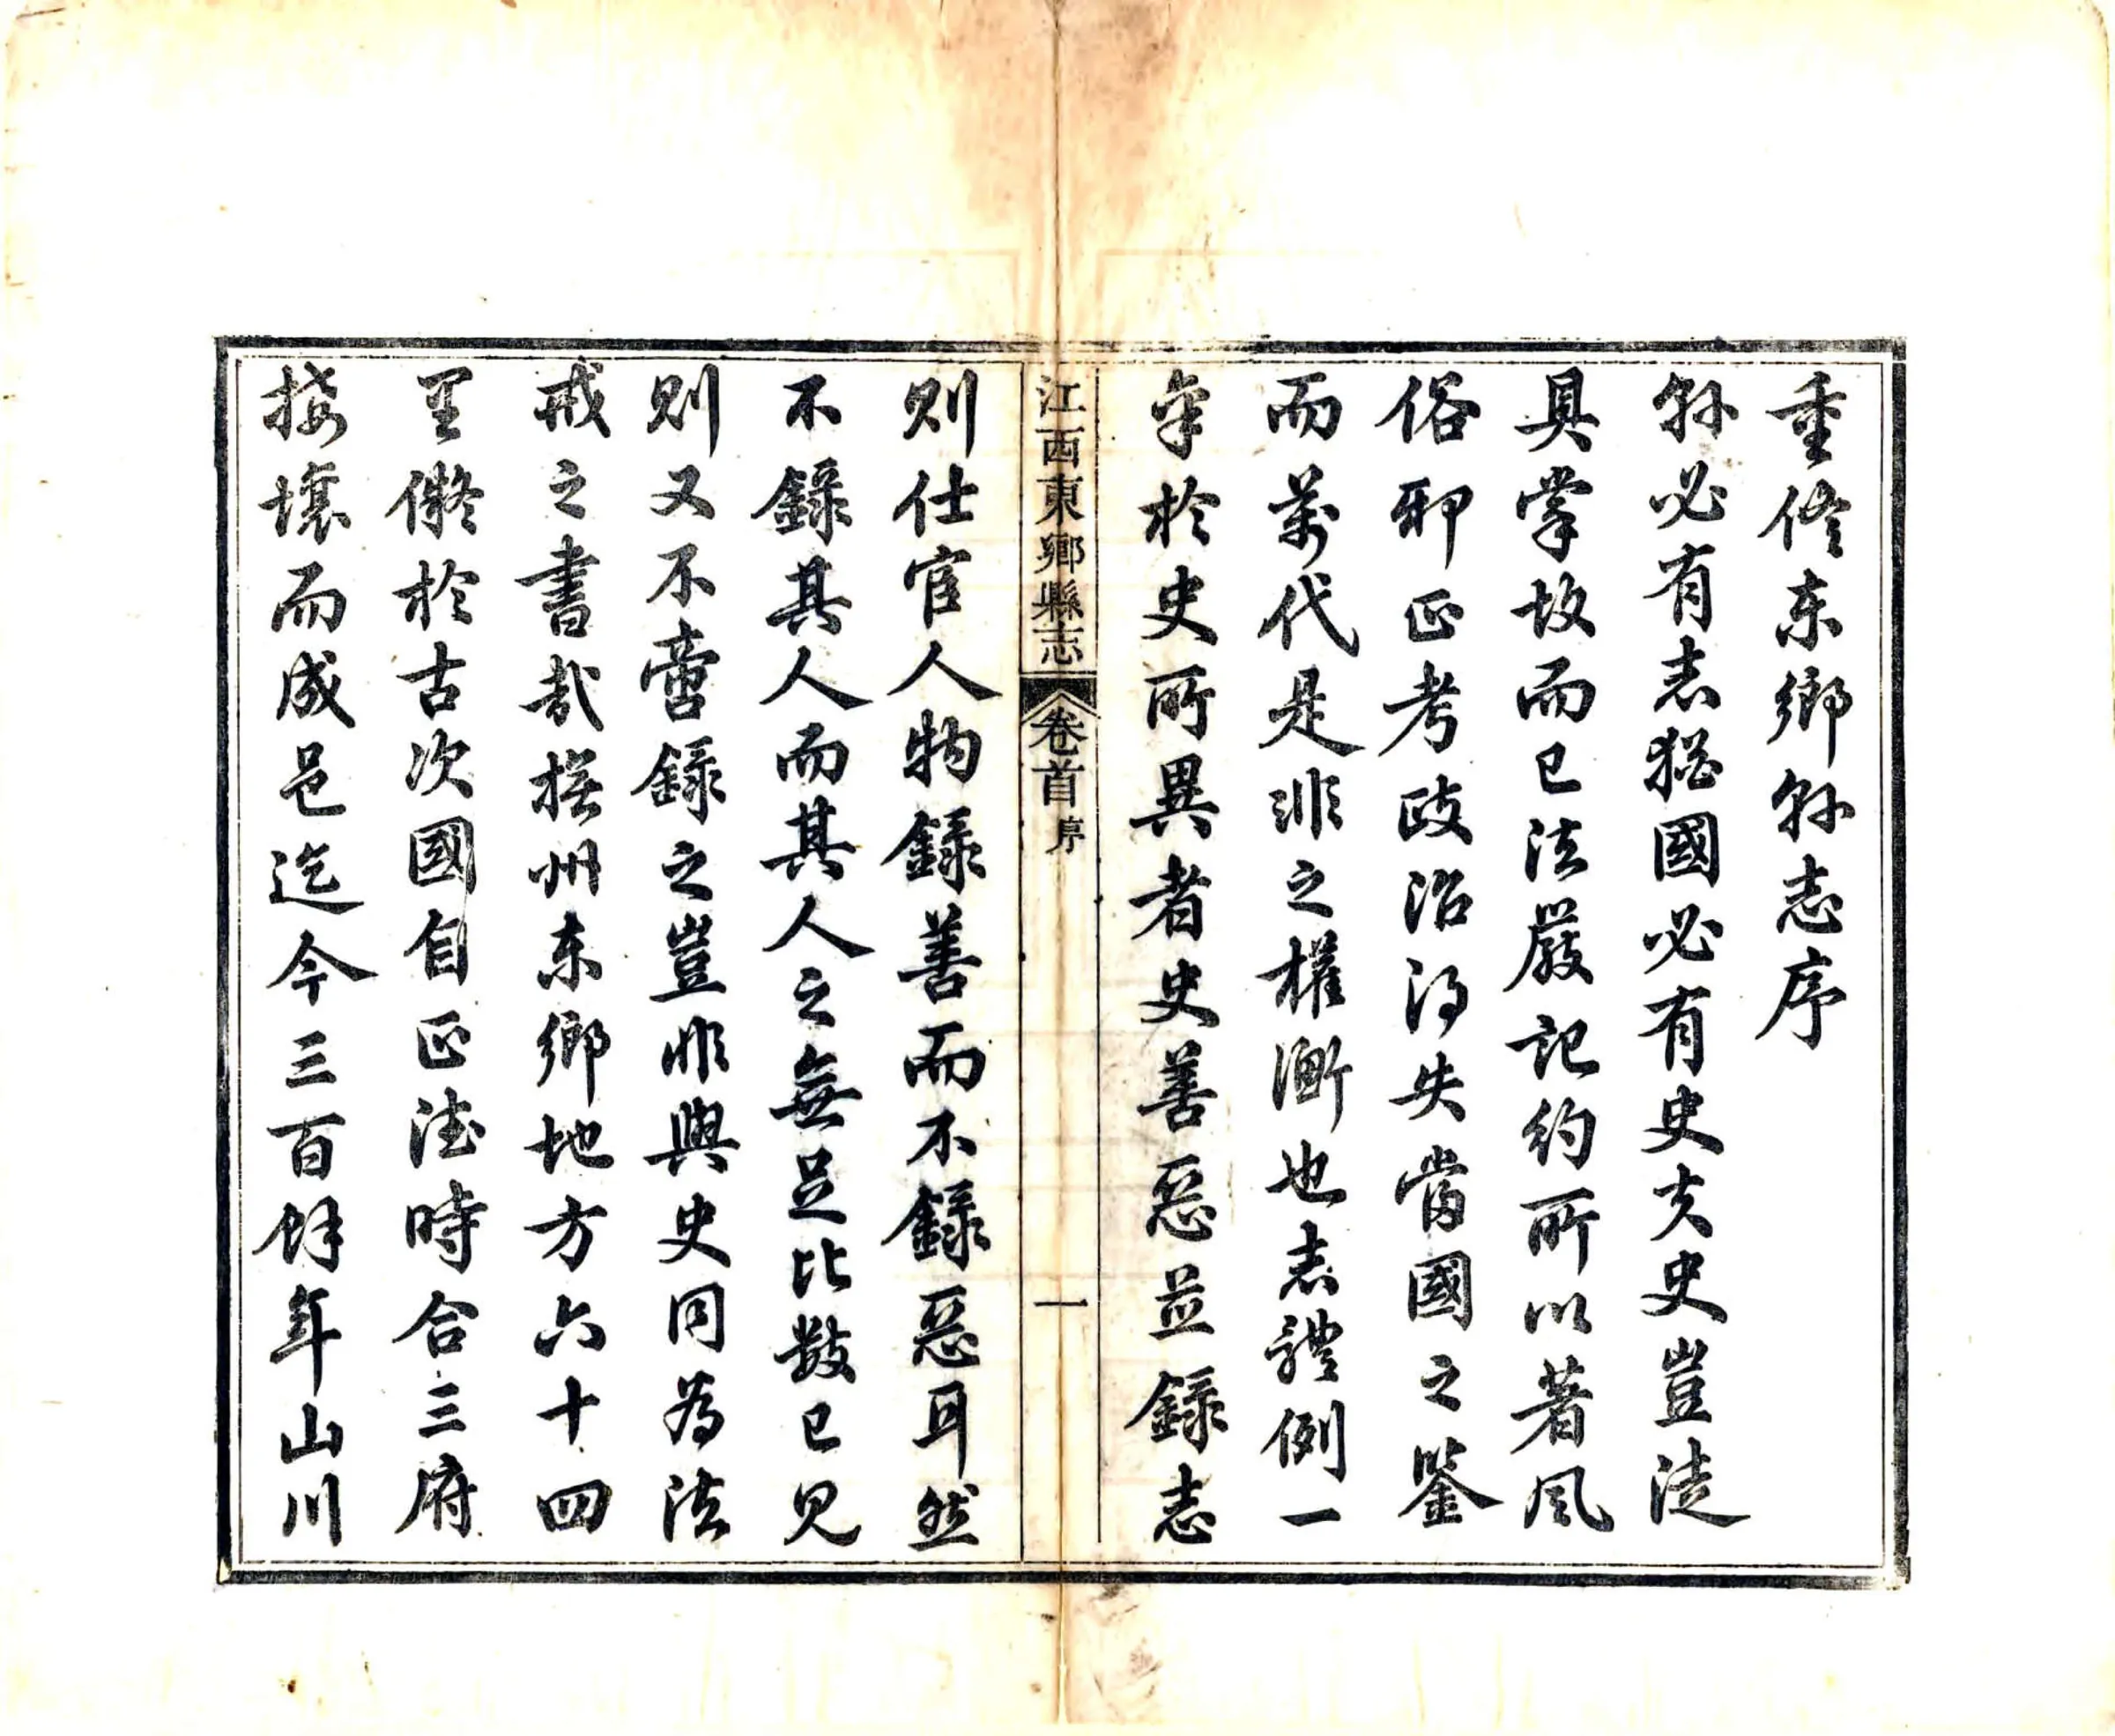 重修东鄉縣志序
縣必有志猶國必有史夫史豈徒
具掌故而已法嚴記約所以著風
俗邪正考政治得失當國之鑒
而萬代是非之權衡也志體例一
準於史所異者史善惡並錄志
江西東鄉縣志 卷首 序 一
則仕宦人物錄善而不錄惡耳然
不錄其人而其人之無足比數已見
則又不啻錄之豈非與史同為法
戒之書哉撫州东鄉地方六十四
里儗於古次國自正德時合三府
接壤而成邑迄今三百餘年山川